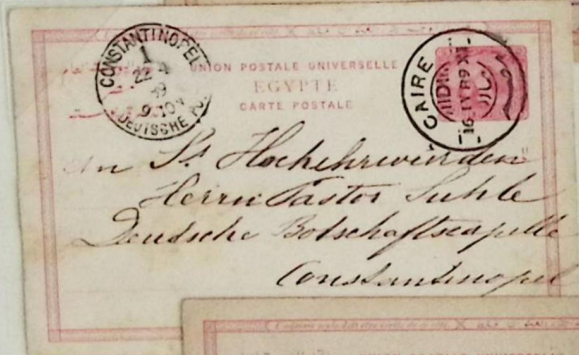 CONSTANTINOPEL
1
DEUTSCHE PO
UNION POSTALE UNIVERSELLE
EGYPTE
CARTE POSTALE
CAIRE
16 IV 89 XII
MIDI
An Sr Hochehrwürden
Herrn Pastor Suhle
Deutsche Botschaftscapelle
Constantinopel